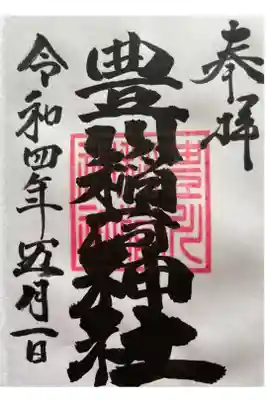 奉拝
豊川稲荷神社
令和四年五月一日